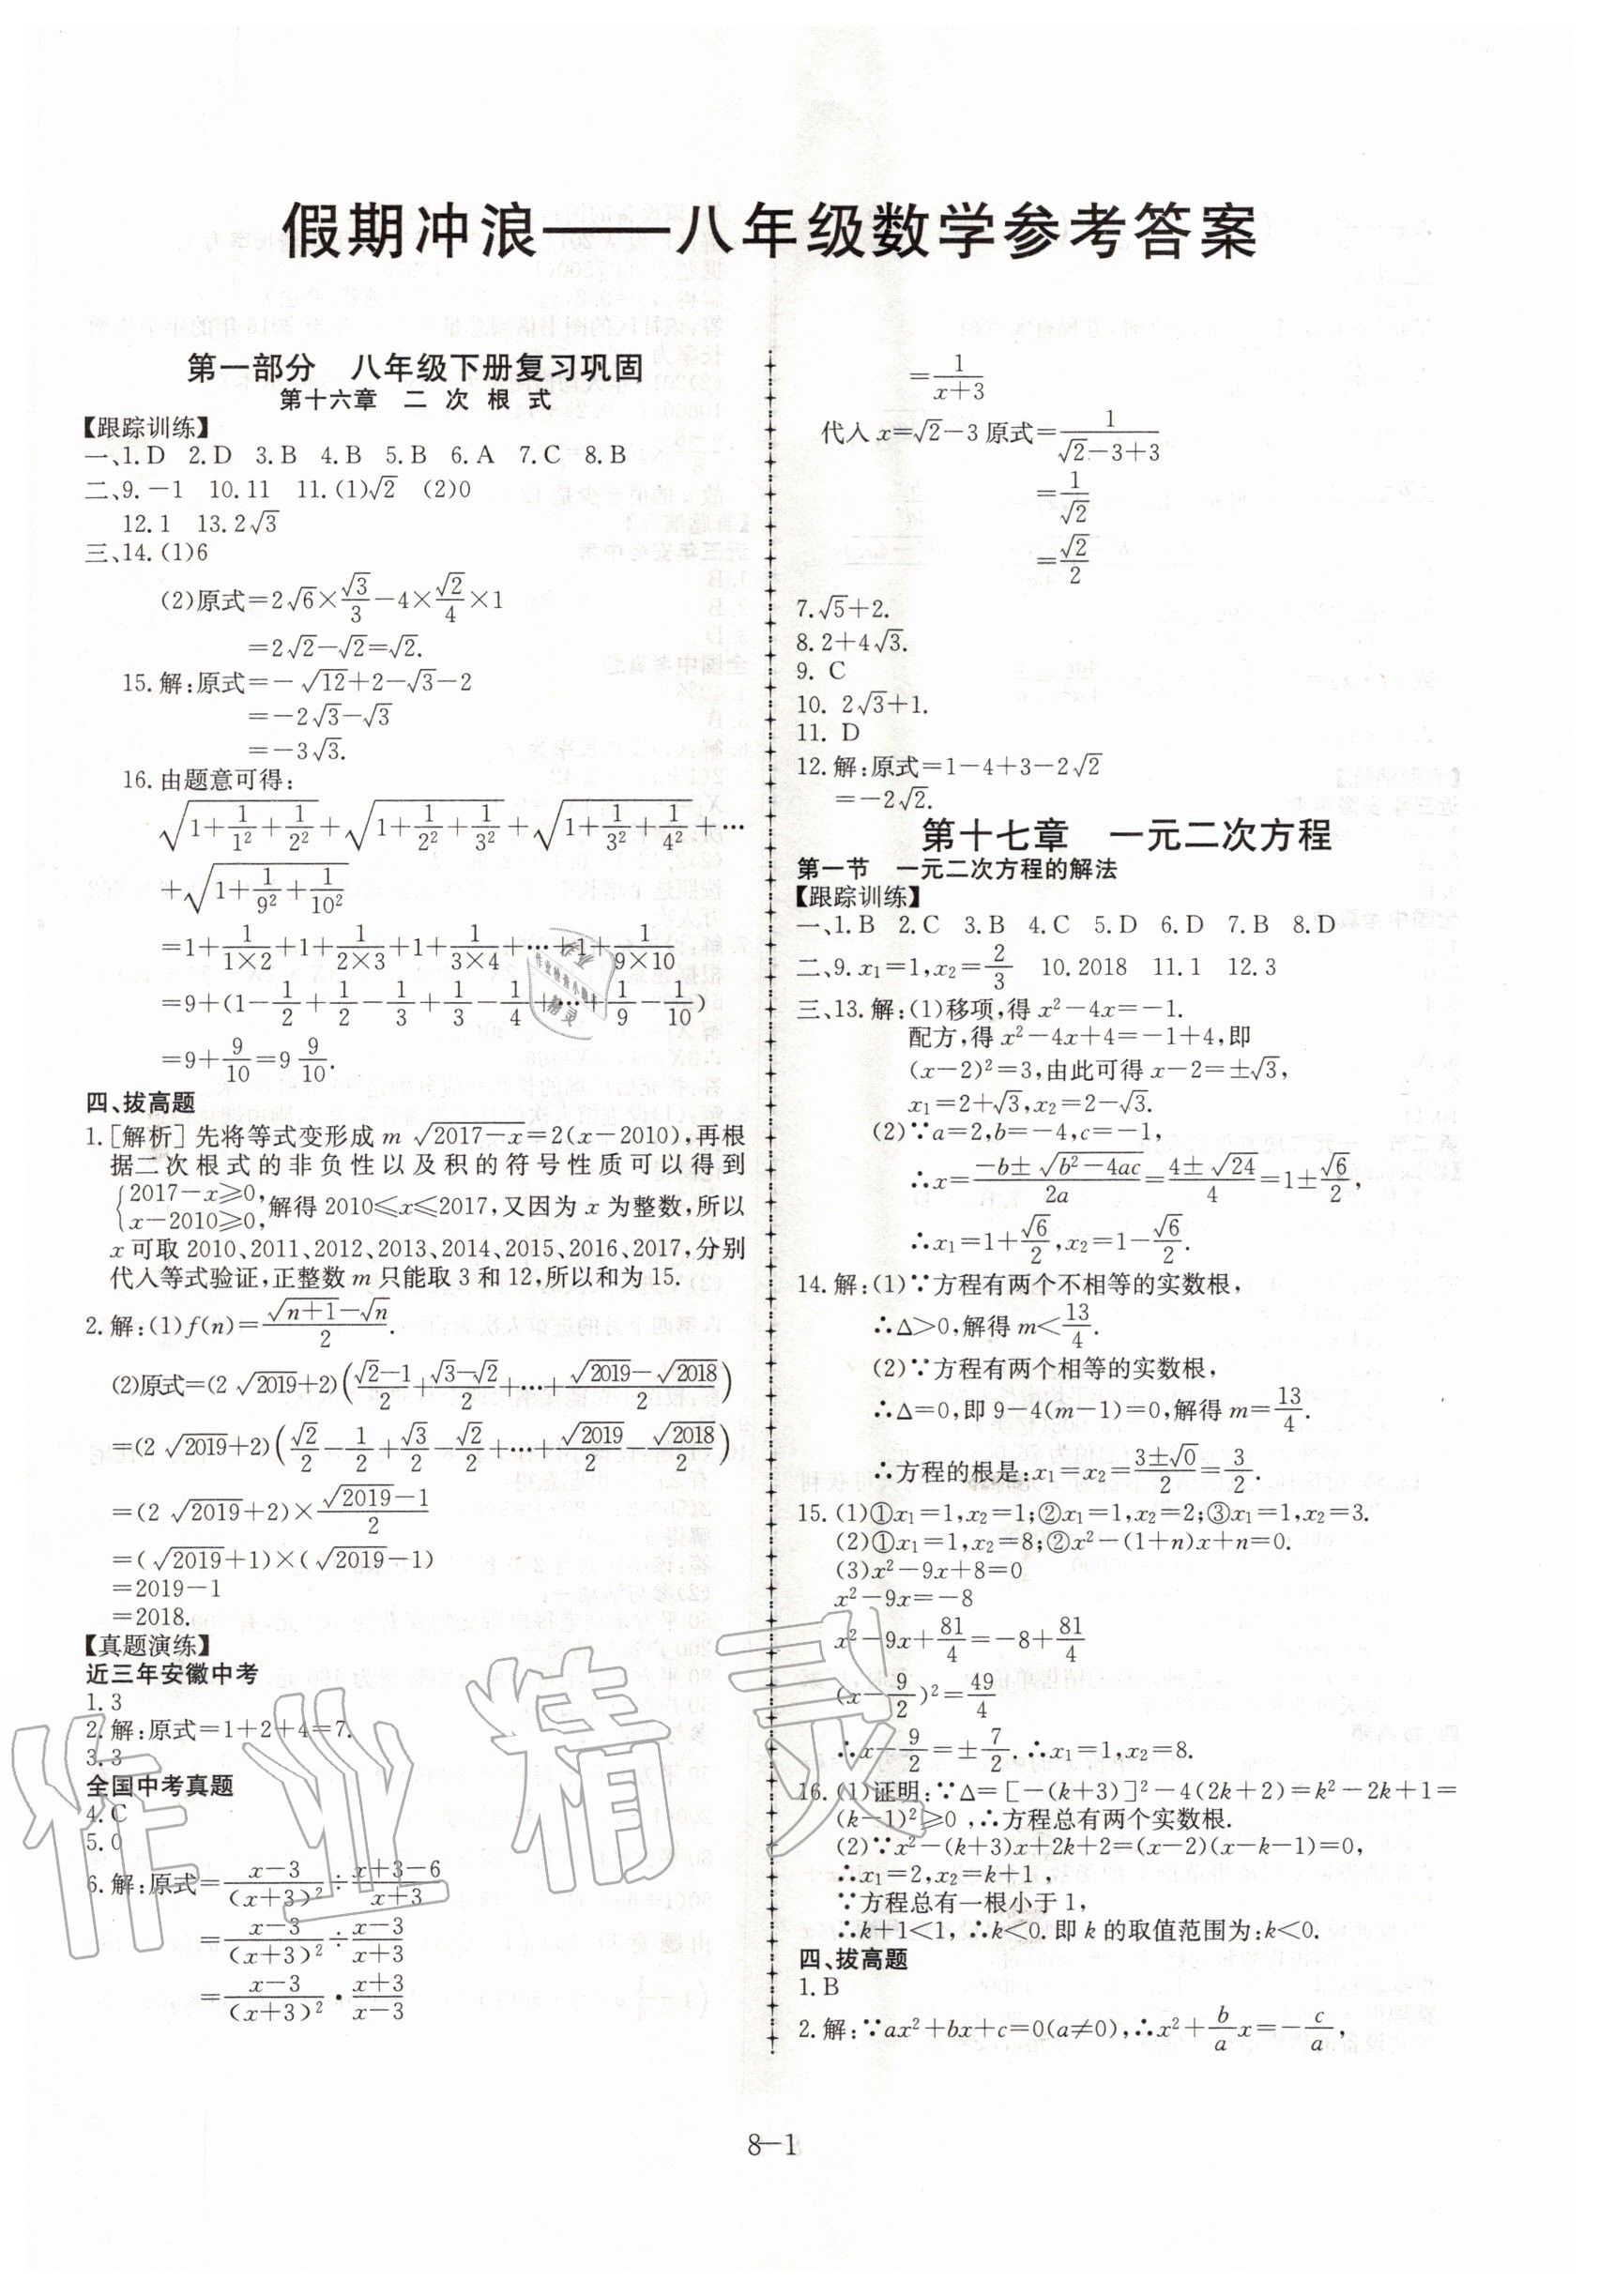 假期冲浪——八年级数学参考答案
第一部分　八年级下册复习巩固
第十六章　二 次 根 式
【跟踪训练】
一、1.D 2.D 3.B 4.B 5.B 6.A 7.C 8.B
二、9.-1 10.11 11.(1)√2 (2)0
12.1 13.2√3
三、14.(1)6
(2)原式=2√6×√3/3-4×√2/4×1
=2√2-√2=√2.
15.解:原式=-√12+2-√3-2
=-2√3-√3
=-3√3.
16.由题意可得:
√(1+1/1²+1/2²)+√(1+1/2²+1/3²)+√(1+1/3²+1/4²)+…
+√(1+1/9²+1/10²)
=1+1/(1×2)+1+1/(2×3)+1+1/(3×4)+…+1+1/(9×10)
=9+(1-1/2+1/2-1/3+1/3-1/4+…+1/9-1/10)
=9+9/10=9 9/10.
四、拔高题
1.[解析]先将等式变形成 m√(2017-x)=2(x-2010),再根
据二次根式的非负性以及积的符号性质可以得到
{2017-x≥0, x-2010≥0,解得 2010≤x≤2017,又因为 x 为整数,所以
x 可取 2010、2011、2012、2013、2014、2015、2016、2017,分别
代入等式验证,正整数 m 只能取 3 和 12,所以和为 15.
2.解:(1)f(n)=(√(n+1)-√n)/2.
(2)原式=(2√2019+2)((√2-1)/2+(√3-√2)/2+…+(√2019-√2018)/2)
=(2√2019+2)(√2/2-1/2+√3/2-√2/2+…+√2019/2-√2018/2)
=(2√2019+2)×(√2019-1)/2
=(√2019+1)×(√2019-1)
=2019-1
=2018.
【真题演练】
近三年安徽中考
1.3
2.解:原式=1+2+4=7.
3.3
全国中考真题
4.C
5.0
6.解:原式=(x-3)/(x+3)²÷(x+3-6)/(x+3)
=(x-3)/(x+3)²÷(x-3)/(x+3)
=(x-3)/(x+3)²·(x+3)/(x-3)
=1/(x+3)
代入 x=√2-3 原式=1/(√2-3+3)
=1/√2
=√2/2
7.√5+2.
8.2+4√3.
9. C
10. 2√3+1.
11. D
12.解:原式=1-4+3-2√2
=-2√2.
第十七章　一元二次方程
第一节　一元二次方程的解法
【跟踪训练】
一、1.B 2.C 3.B 4.C 5.D 6.D 7.B 8.D
二、9.x₁=1,x₂=2/3 10.2018 11.1 12.3
三、13.解:(1)移项,得 x²-4x=-1.
配方,得 x²-4x+4=-1+4,即
(x-2)²=3,由此可得 x-2=±√3,
x₁=2+√3,x₂=2-√3.
(2)∵a=2,b=-4,c=-1,
∴x=(-b±√(b²-4ac))/2a=(4±√24)/4=1±√6/2,
∴x₁=1+√6/2,x₂=1-√6/2.
14.解:(1)∵方程有两个不相等的实数根,
∴Δ>0,解得 m<13/4.
(2)∵方程有两个相等的实数根,
∴Δ=0,即 9-4(m-1)=0,解得 m=13/4.
∴方程的根是:x₁=x₂=(3±√0)/2=3/2.
15.(1)①x₁=1,x₂=1;②x₁=1,x₂=2;③x₁=1,x₂=3.
(2)①x₁=1,x₂=8;②x²-(1+n)x+n=0.
(3)x²-9x+8=0
x²-9x=-8
x²-9x+81/4=-8+81/4
(x-9/2)²=49/4
∴x-9/2=±7/2.∴x₁=1,x₂=8.
16.(1)证明:∵Δ=[-(k+3)]²-4(2k+2)=k²-2k+1=
(k-1)²≥0,∴方程总有两个实数根.
(2)∵x²-(k+3)x+2k+2=(x-2)(x-k-1)=0,
∴x₁=2,x₂=k+1,
∵方程总有一根小于 1,
∴k+1<1,∴k<0.即 k 的取值范围为:k<0.
四、拔高题
1.B
2.解:∵ax²+bx+c=0(a≠0),∴x²+b/a x=-c/a,
8—1
作业精灵